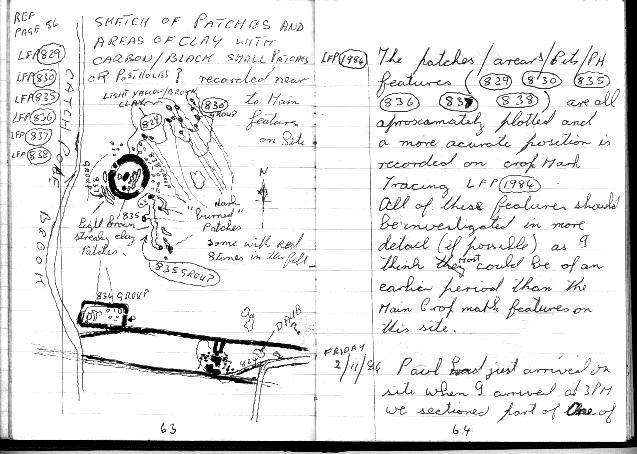 REF
PAGE 56
LFP 829
LFP 830
LFP 835
LFP 836
LFP 837
LFP 838
SKETCH OF PATCHES AND
AREAS OF CLAY WITH
CARBON/BLACK SMALL PATCHES
OR POSTHOLES? recorded near
to Main
features
on Site
LIGHT YELLOW/BROWN
CLAY
829
830
GROUP
CATCH POLE BROOK
838 GROUP
837
GROUP
N
835
Dark
"burned"
Patches
Some with Red
Stones in the fill
Light brown
streaky clay
Patches.
835 GROUP
836 GROUP
DAUB
63
LFP 1984
The patches/arears/Pits/PH
features (829 830 835
836 837 838) are all
aproxamately plotted and
a more acurate position is
recorded on crop Mark
Tracing LFP 1984.
All of these features should
be investigated in more
detail (if possible) as I
think they Most could be of an
earlier period than the
Main Crop mark features on
this site.
FRIDAY
2/11/84
Paul had just arrived on
site when I arrived at 3PM
we sectioned part of One of
64